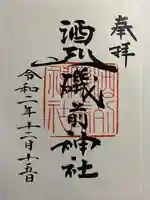 奉拝
酒列磯前神社
令和二年十二月十五日